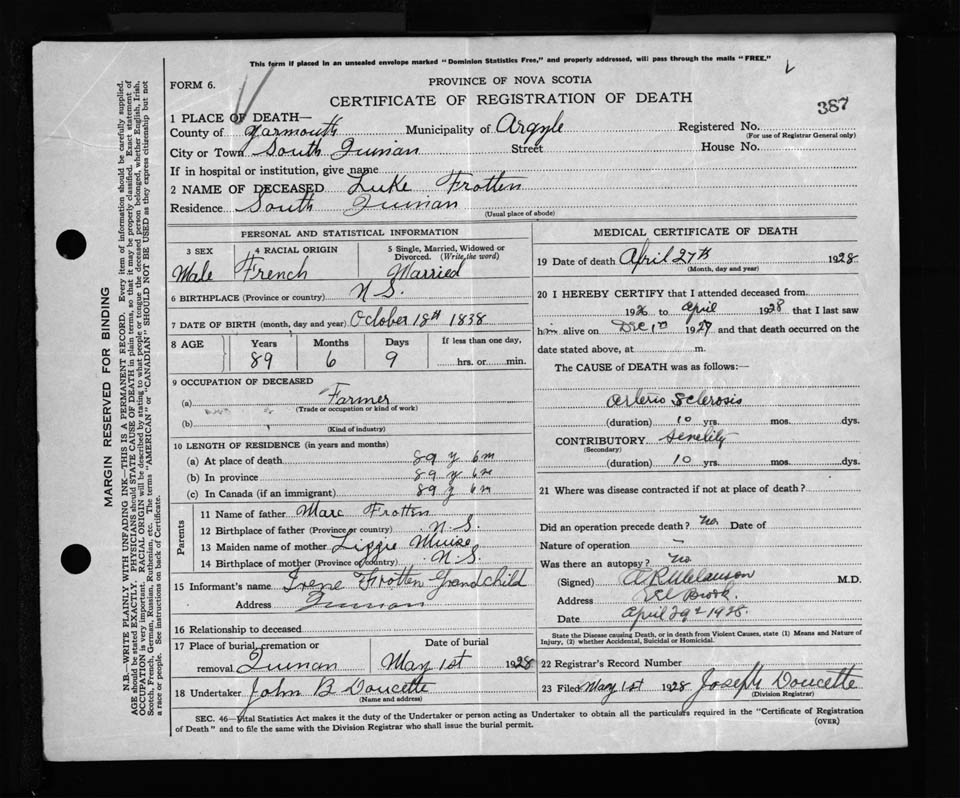 This form if placed in an unsealed envelope marked "Dominion Statistics Free," and properly addressed, will pass through the mails "FREE."
FORM 6.
PROVINCE OF NOVA SCOTIA
CERTIFICATE OF REGISTRATION OF DEATH
387
1 PLACE OF DEATH—
County of Yarmouth Municipality of Argyle Registered No.
(For use of Registrar General only)
City or Town South Quinan Street House No.
If in hospital or institution, give name
2 NAME OF DECEASED Luke Frotten
Residence South Quinan
(Usual place of abode)
PERSONAL AND STATISTICAL INFORMATION
3 SEX 4 RACIAL ORIGIN 5 Single, Married, Widowed or Divorced. (Write the word)
Male French Married
6 BIRTHPLACE (Province or country) N S.
7 DATE OF BIRTH (month, day and year) October 18th 1838
8 AGE Years Months Days If less than one day,
89 6 9 hrs. or min.
9 OCCUPATION OF DECEASED
(a) Farmer
(Trade or occupation or kind of work)
(b)
(Kind of industry)
10 LENGTH OF RESIDENCE (in years and months)
(a) At place of death 89 y 6 m
(b) In province 89 y 6 m
(c) In Canada (if an immigrant) 89 y 6 m
Parents
11 Name of father Marc Frotten
12 Birthplace of father (Province or country) N. S.
13 Maiden name of mother Lizzie Muise
14 Birthplace of mother (Province or country) N. S.
15 Informant's name Irene Frotten Grandchild
Address Quinan
16 Relationship to deceased
17 Place of burial, cremation or removal Quinan Date of burial May 1st 1928
18 Undertaker John B Doucette
(Name and address)
MEDICAL CERTIFICATE OF DEATH
19 Date of death April 27th 1928
(Month, day and year)
20 I HEREBY CERTIFY that I attended deceased from
1926 to April 1928 that I last saw
him alive on Dec 1927 and that death occurred on
date stated above, at m.
The CAUSE of DEATH was as follows:—
Arterio Sclerosis
(duration) 10 yrs. mos. dys.
CONTRIBUTORY Senelity
(Secondary)
(duration) 10 yrs. mos. dys.
21 Where was disease contracted if not at place of death?
Did an operation precede death? no. Date of
Nature of operation –
Was there an autopsy? no
(Signed) M.D.
Address Eel Brook.
Date April 29th 1928.
State the Disease causing Death, or in death from Violent Causes, state (1) Means and Nature of
Injury, (2) whether Accidental, Suicidal or Homicidal.
22 Registrar's Record Number
23 Filed May 1st 1928 Joseph Doucette
(Division Registrar)
SEC. 46—Vital Statistics Act makes it the duty of the Undertaker or person acting as Undertaker to obtain all the particulars required in the "Certificate of Registration
of Death" and to file the same with the Division Registrar who shall issue the burial permit.
(OVER)
MARGIN RESERVED FOR BINDING
N.B.—WRITE PLAINLY WITH UNFADING INK—THIS IS A PERMANENT RECORD. Every item of information should be carefully supplied.
AGE should be stated EXACTLY. PHYSICIANS should STATE CAUSE OF DEATH in plain terms, so that it may be properly classified. Exact statement of
OCCUPATION is very important. RACIAL ORIGIN will be described by stating to what people or tongue the deceased person belonged, whether English, Irish,
Scotch, French, German, Russian, Ruthenian, etc. The terms "AMERICAN" or "CANADIAN" SHOULD NOT BE USED as they express citizenship but not
a race or people. See instructions on back of Certificate.